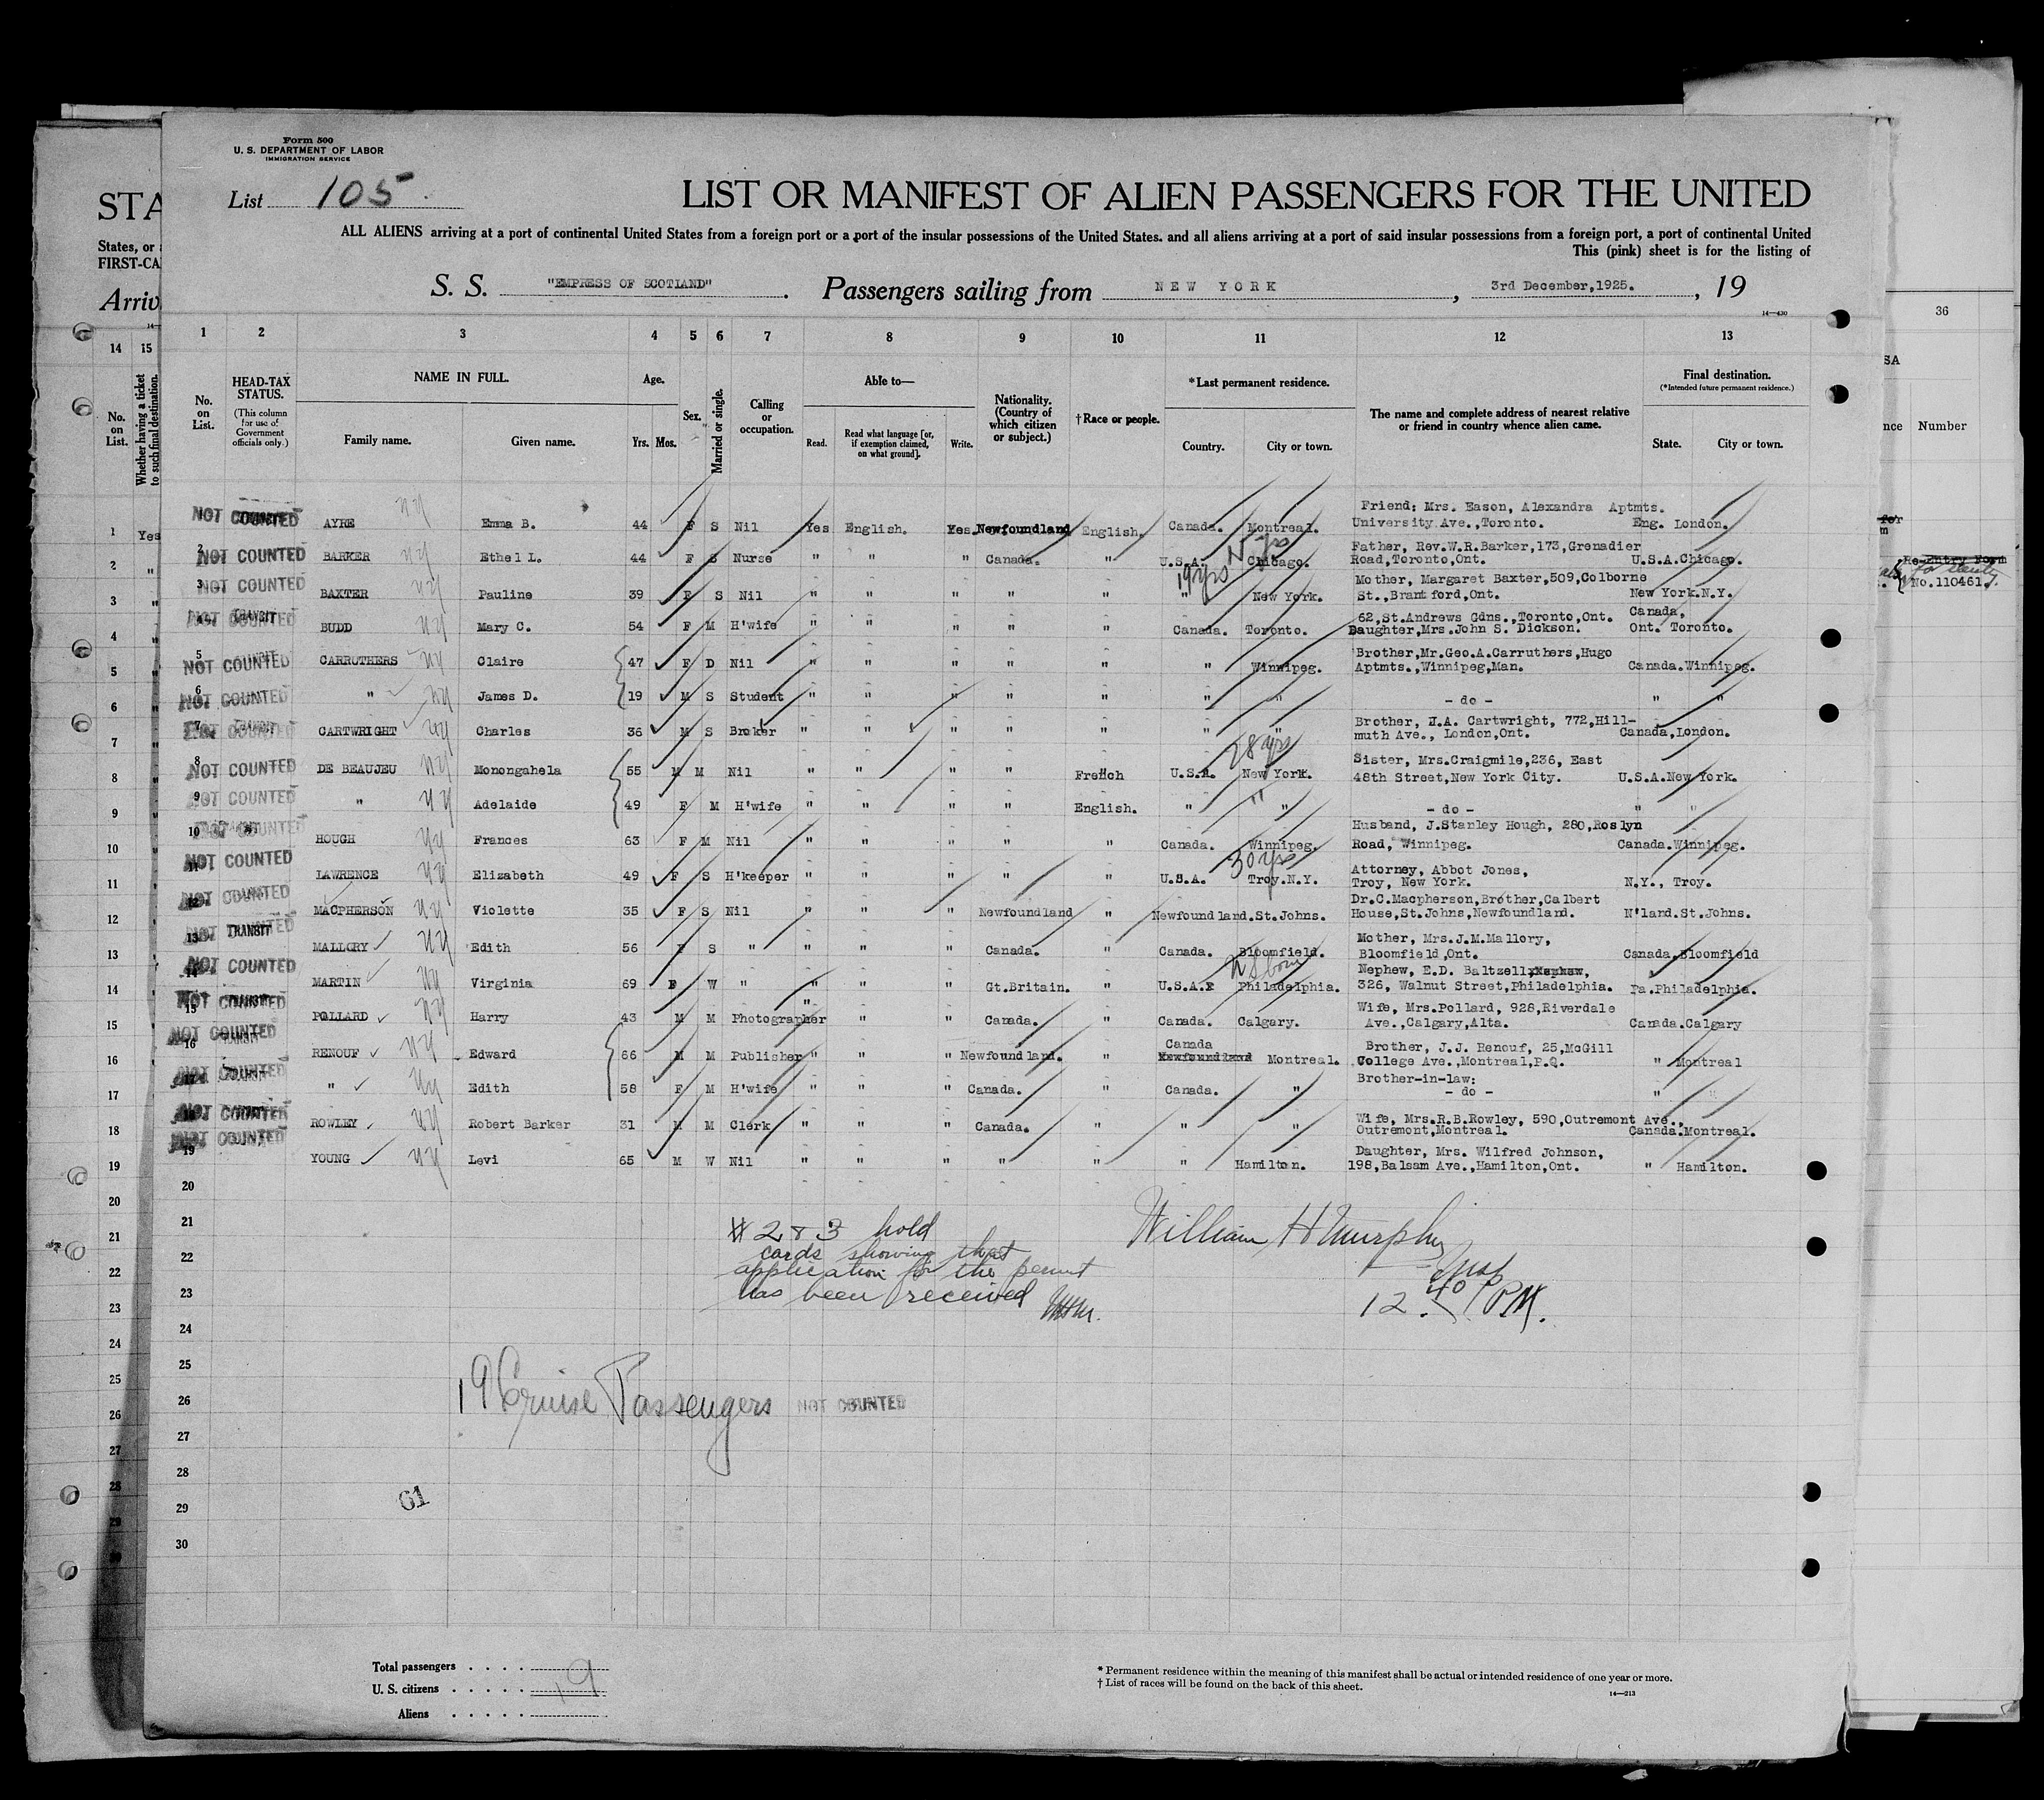 Form 500
U. S. DEPARTMENT OF LABOR
IMMIGRATION SERVICE
List 105.
LIST OR MANIFEST OF ALIEN PASSENGERS FOR THE UNITED
ALL ALIENS arriving at a port of continental United States from a foreign port or a port of the insular possessions of the United States, and all aliens arriving at a port of said insular possessions from a foreign port, a port of continental United
This (pink) sheet is for the listing of
S. S. "EMPRESS OF SCOTLAND". Passengers sailing from NEW YORK, 3rd December,1925., 19
14—430
STA
States, or
FIRST-CA
Arriv
14 15
No. on List.
Whether having a ticket to such final destination.
36
SA
nce Number
Re-entry Form
No.110461.
1 2 3 4 5 6 7 8 9 10 11 12 13
No. on List.
HEAD-TAX STATUS.
(This column for use of Government officials only.)
NAME IN FULL.
Family name. Given name.
Age.
Yrs. Mos.
Sex.
Married or single.
Calling or occupation.
Able to—
Read. Read what language [or, if exemption claimed, on what ground]. Write.
Nationality. (Country of which citizen or subject.)
† Race or people.
* Last permanent residence.
Country. City or town.
The name and complete address of nearest relative or friend in country whence alien came.
Final destination.
(*Intended future permanent residence.)
State. City or town.
1 Yes NOT COUNTED AYRE NY Emma B. 44 F S Nil Yes English. Yes. Newfoundland English. Canada. Montreal. Friend; Mrs. Eason, Alexandra Aptmts. University Ave.,Toronto. Eng. London.
2 " NOT COUNTED BARKER NY Ethel L. 44 F S Nurse " " " Canada. " U.S.A. Chicago. Father, Rev.W.R.Barker,173,Grenadier Road,Toronto,Ont. U.S.A.Chicago.
3 " NOT COUNTED BAXTER NY Pauline 39 F S Nil " " " " " " 19 yrs New York. Mother, Margaret Baxter,509,Colborne St.,Brantford,Ont. New York.N.Y.
4 " NOT COUNTED TRANSIT BUDD NY Mary C. 54 F M H'wife " " " " " Canada. Toronto. 62,St.Andrews Gdns.,Toronto,Ont. Daughter,Mrs.John S. Dickson. Canada, Ont. Toronto.
5 " NOT COUNTED CARRUTHERS NY Claire 47 F D Nil " " " " " " Winnipeg. Brother,Mr.Geo.A.Carruthers,Hugo Aptmts.,Winnipeg,Man. Canada.Winnipeg.
6 " NOT COUNTED " NY James D. 19 M S Student " " " " " " " - do - " "
7 " NOT COUNTED TRANSIT CARTWRIGHT NY Charles 36 M S Broker " " " " " " " Brother, H.A. Cartwright, 772,Hill-muth Ave., London,Ont. Canada,London.
8 " NOT COUNTED DE BEAUJEU NY Monongahela 55 M M Nil " " " " French U.S.A. New York. 28 yrs Sister, Mrs.Craigmile,236, East 48th Street,New York City. U.S.A.New York.
9 " NOT COUNTED " NY Adelaide 49 F M H'wife " " " " English. " " - do - " "
10 " NOT COUNTED HOUGH NY Frances 63 F M Nil " " " " " Canada. Winnipeg. Husband, J.Stanley Hough, 280,Roslyn Road, Winnipeg. Canada.Winnipeg.
11 " NOT COUNTED LAWRENCE NY Elizabeth 49 F S H'keeper " " " " " U.S.A. 30 yrs Troy.N.Y. Attorney, Abbot Jones, Troy, New York. N.Y., Troy.
12 " NOT COUNTED MACPHERSON NY Violette 35 F S Nil " " " Newfoundland " Newfoundland.St.Johns. Dr.C.Macpherson,Brother,Calbert House,St.Johns,Newfoundland. N'land.St.Johns.
13 " NOT COUNTED TRANSIT MALLORY NY Edith 56 F S " " " " Canada. " Canada. Bloomfield. Mother, Mrs.J.M.Mallory, Bloomfield,Ont. Canada,Bloomfield
14 " NOT COUNTED MARTIN NY Virginia 69 F W " " " " Gt.Britain. " U.S.A. US born Philadelphia. Nephew, E.D. Baltzell, 326, Walnut Street,Philadelphia. Pa.Philadelphia.
15 NOT COUNTED POLLARD NY Harry 43 M M Photographer " " " Canada. " Canada. Calgary. Wife, Mrs.Pollard, 928,Riverdale Ave.,Calgary,Alta. Canada.Calgary
16 NOT COUNTED TRANSIT RENOUF NY Edward 66 M M Publisher " " " Newfoundland. " Canada Newfoundland Montreal. Brother, J.J. Renouf, 25,McGill College Ave.,Montreal,P.Q. " Montreal
17 NOT COUNTED " NY Edith 58 F M H'wife " " " Canada. " Canada. " Brother-in-law: - do - " "
18 NOT COUNTED ROWLEY NY Robert Barker 31 M M Clerk " " " Canada. " " " Wife, Mrs.R.B.Rowley, 590,Outremont Ave., Outremont,Montreal. Canada.Montreal.
19 NOT COUNTED YOUNG NY Levi 65 M W Nil " " " " " " Hamilton. Daughter, Mrs. Wilfred Johnson, 198,Balsam Ave.,Hamilton,Ont. " Hamilton.
20
21
22
23
24
25
26
27
28
29
30
# 2 & 3 hold
cards showing that
application for the permit
has been received WHM.
William H Murphy
Insp
12.40 PM.
19 Cruise Passengers NOT COUNTED
61
Total passengers . . . . 19
U. S. citizens . . . . .
Aliens . . . . .
* Permanent residence within the meaning of this manifest shall be actual or intended residence of one year or more.
† List of races will be found on the back of this sheet.
14—213